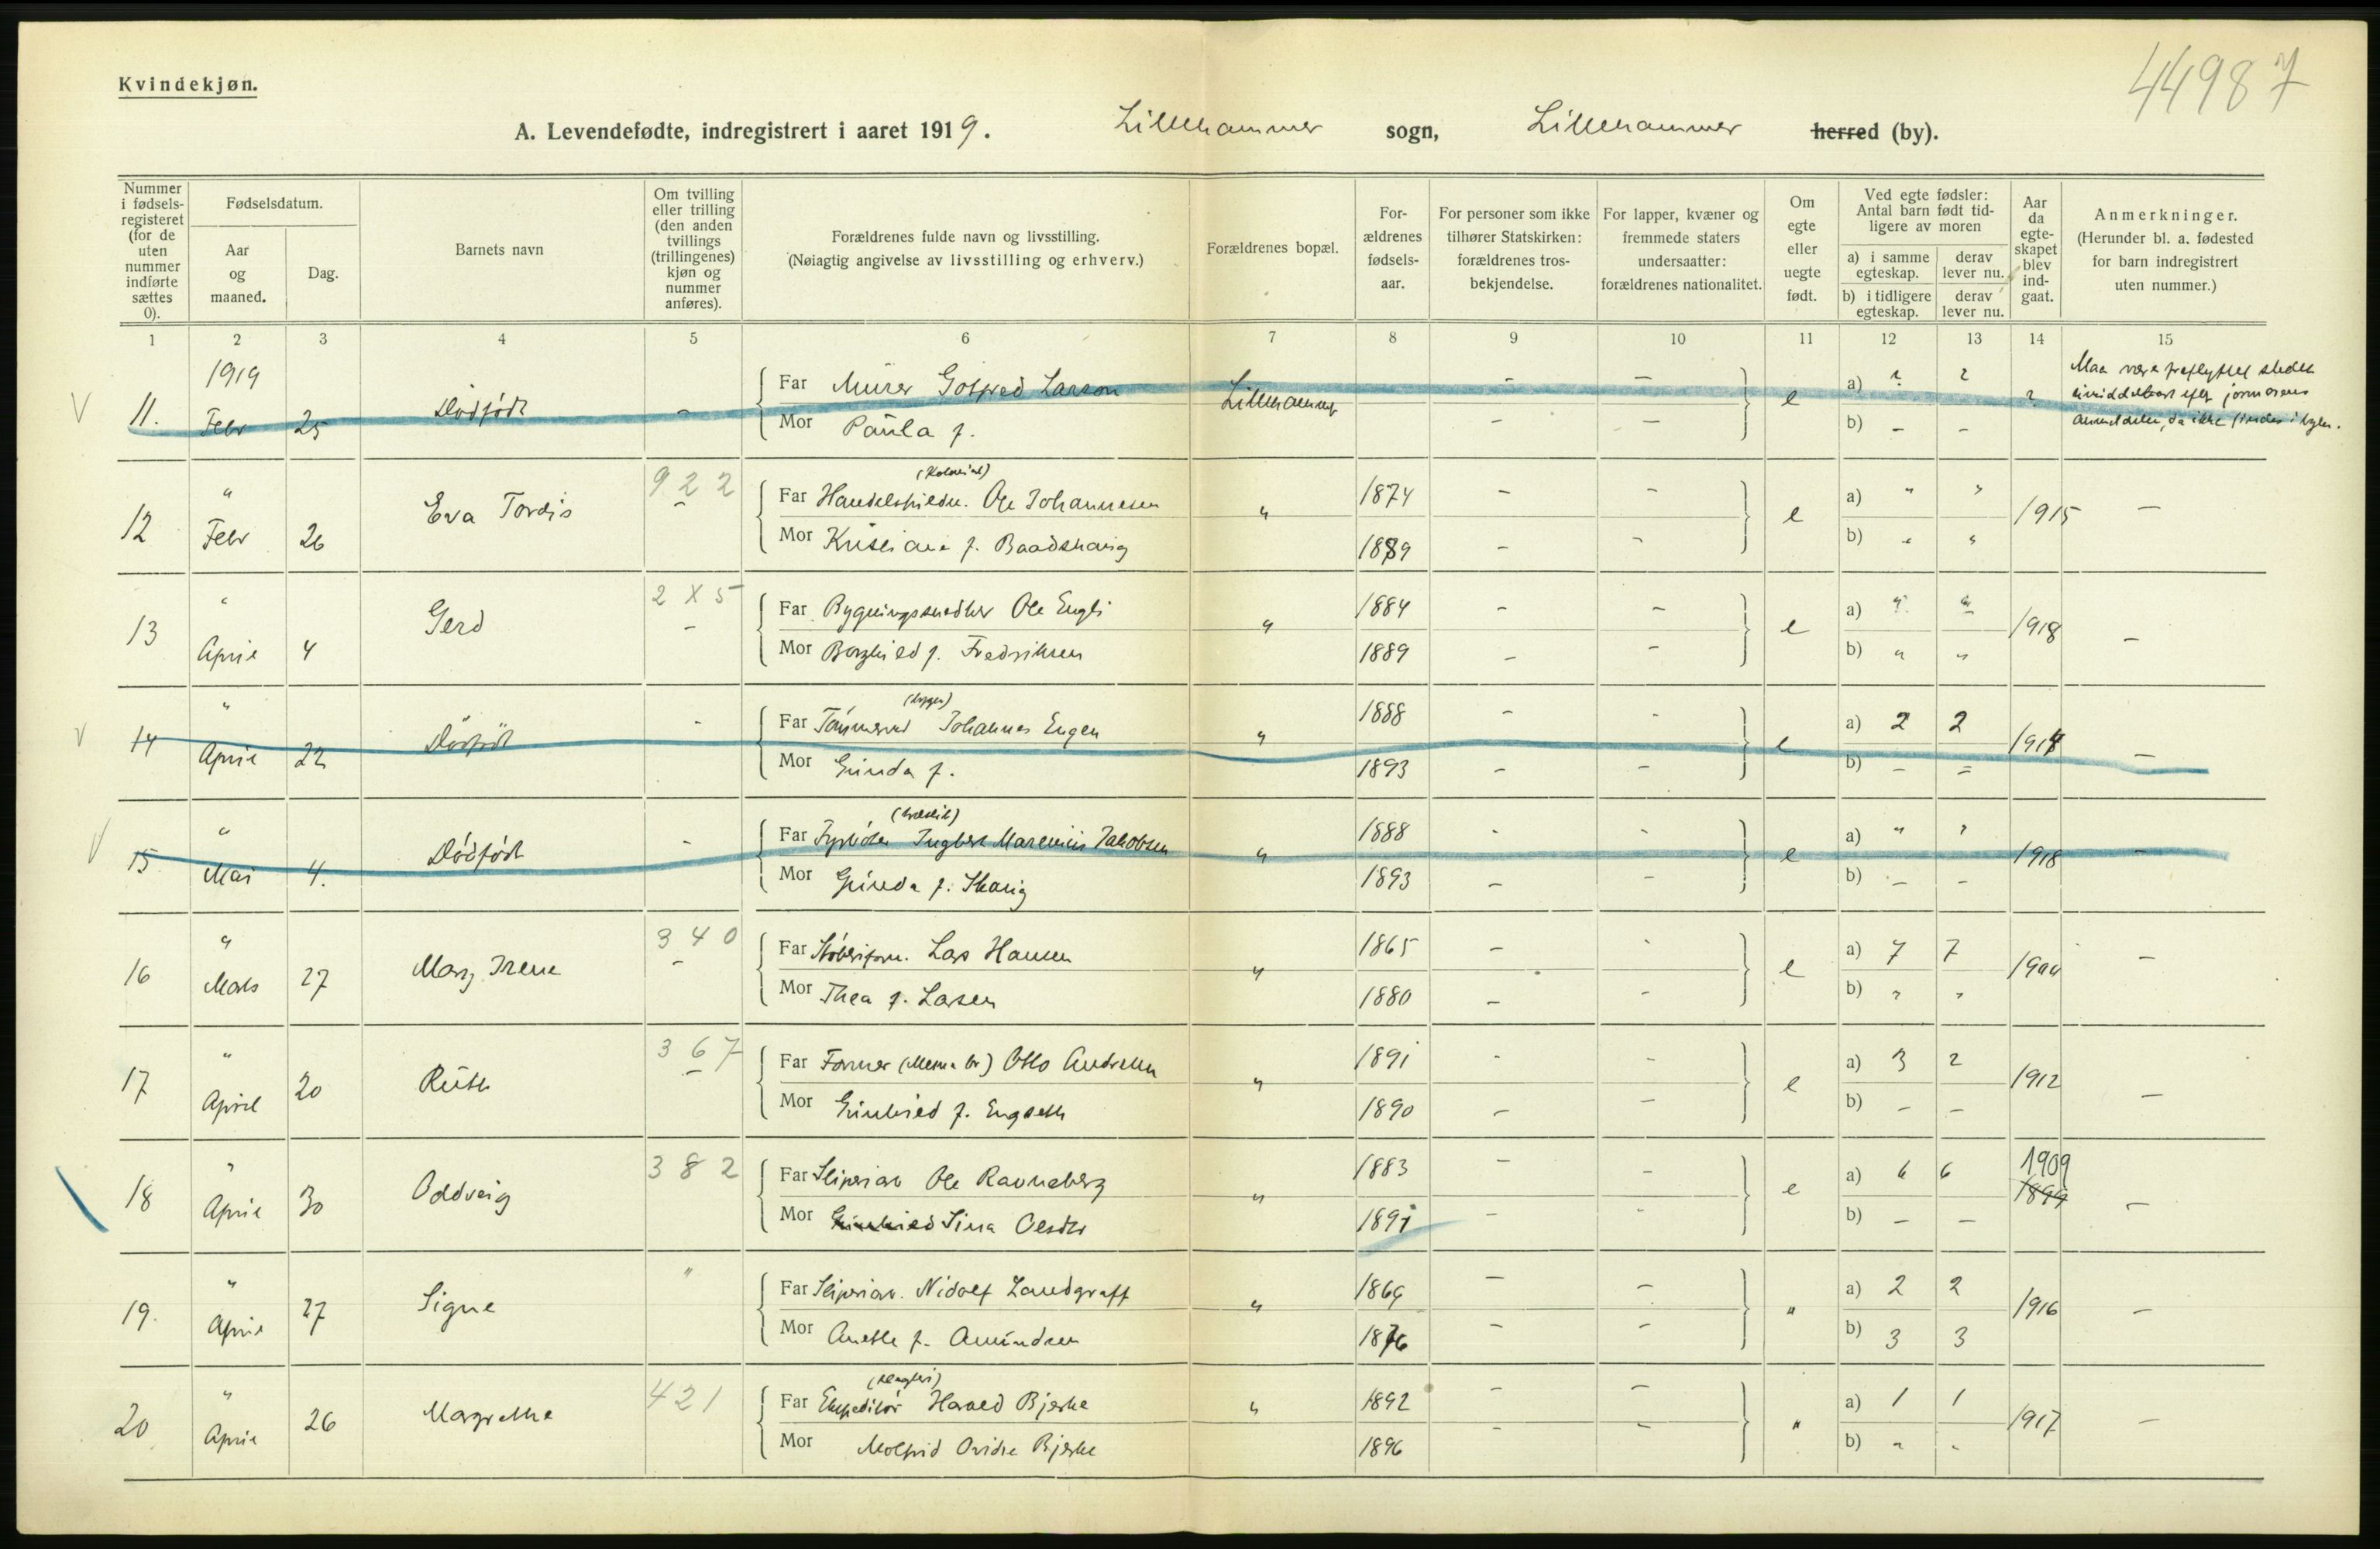 44987
Kvindekjøn.
A. Levendefødte, indregistrert i aaret 1919. Lillehammer sogn, Lillehammer herred (by).
Nummer i fødsels-registeret (for de uten nummer indførte sættes 0).
Fødselsdatum.
Aar og maaned.
Dag.
Barnets navn
Om tvilling eller trilling (den anden tvillings (trillingenes) kjøn og nummer anføres).
Forældrenes fulde navn og livsstilling.
(Nøiagtig angivelse av livsstilling og erhverv.)
Forældrenes bopæl.
For-ældrenes fødsels-aar.
For personer som ikke tilhører Statskirken: forældrenes tros-bekjendelse.
For lapper, kvæner og fremmede staters undersaatter: forældrenes nationalitet.
Om egte eller uegte født.
Ved egte fødsler: Antal barn født tid-ligere av moren
a) i samme egteskap.
derav lever nu.
b) i tidligere egteskap.
derav lever nu.
Aar da egte-skapet blev ind-gaat.
Anmerkninger.
(Herunder bl. a. fødested for barn indregistrert uten nummer.)
1 2 3 4 5 6 7 8 9 10 11 12 13 14 15
1919
11. Febr 25 Dødfødt - Far Murer Gotfred Larson Lillehammer - - e a) ? ? ?
Mor Paula f. - - b) - -
Maa være fraflyttet stedet
anmeldelse, da ikke findes i byen.
(Kolonial)
12 " Febr 26 Eva Tordis 922 - Far Handelsbildn. Ole Johannesen " 1874 - - e a) " " 1915 -
Mor Kristiane f. Baadshaug 1889 - - b) " "
13 " April 4 Gerd 2X5 - Far Bygningssnedker Ole Engli " 1884 - - e a) " " 1918 -
Mor Borghild f. Fredriksen 1889 - - b) " "
14 " April 22 Dødfødt - Far Johannes Engen " 1888 - - e a) 2 2 1914 -
Mor Gunda f. 1893 - - b) - =
15 " Mai 4. Dødfødt - Far Ingbert Marenius Jakobsen " 1888 - - e a) " " 1918 -
Mor Gunda f. Skaug 1893 - - b) - -
16 " Mars 27 Marg Irene 340 - Far Støberiform. Lars Hansen " 1865 - - e a) 7 7 1900 -
Mor Thea f. Larsen 1880 - - b) " "
17 " April 20 Ruth 367 - Far Former (Mesna br) Otto Andresen " 1891 - - e a) 3 2 1912 -
Mor Gunhild f. Engseth 1890 - - b) - -
18 " April 30 Oddveig 382 Far Sliperiarb Ole Ravneberg " 1883 - - e a) 6 6 1909 1899 -
Mor Gunhild Sina Olsdtr 1891 - - b) - -
19. " April 27 Signe " Far Sliperiarb. Nidolf Landgraff " 1869 - - " a) 2 2 1916 -
Mor Anette f. Amundsen 1876 - - b) 3 3
20 " April 26 Margrethe 421 Far Ekspeditør Harald Bjerke " 1892 - - " a) 1 1 1917 -
Mor Molfrid Ovidie Bjerke 1896 - - b) " "